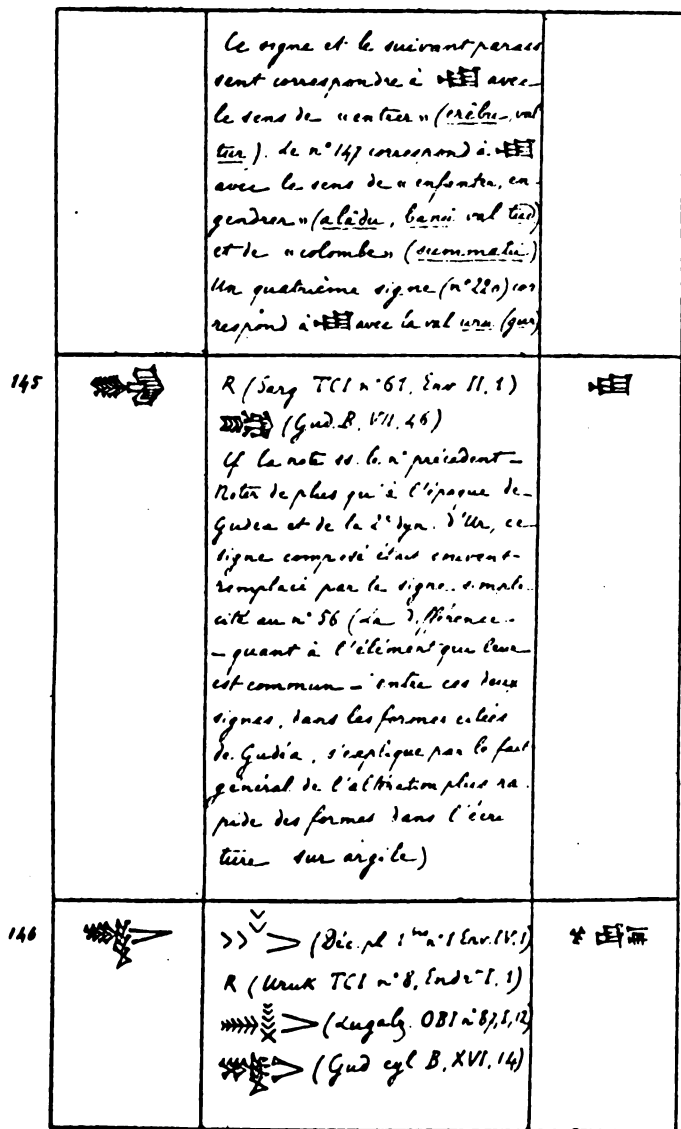 Ce signe et le suivant parais
sent correspondre à avec
le sens de "entrer" (erêbu, val
tur). Le n° 147 correspond à
avec le sens de "enfanter, en
gendrer" (alâdu, banû val
et de "colombe" (summatu)
Un quatrième signe (n° 22 cor
respond à avec la val uru (gur)
145
R (Sarg TCI n° 61, Env II, 1)
(Gud. B, VII, 46)
Cf la note ss. le n° précédent _
Noter de plus qu'à l'époque de
Gudea et de la 2e dyn. d'Ur, ce
signe composé était souvent
remplacé par le signe simple
cité au n° 56 (La différence
_ quant à l'élément qui leur
est commun _ entre ces deux
signes, dans les formes citées
de Gudéa, s'explique par le fait
général de l'altération plus ra
pide des formes dans l'écri
ture sur argile)
146
(Déc. pl 1 n° 1 Env. IV, 1)
R (Uruk TCI n° 8, I, 1)
(Lugalz. OBI n° 87, I, 12)
(Gud cyl B, XVI, 14)